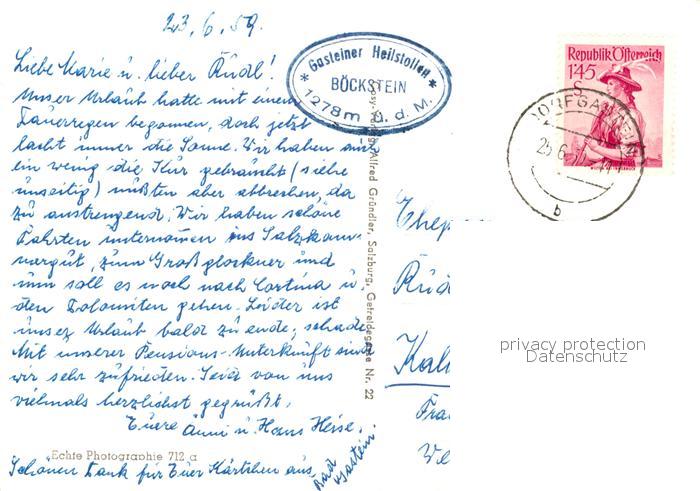 23.6.59.
Liebe Marie u. lieber Rudl!
Unser Urlaub hatte mit einem
Dauerregen begonnen, doch jetzt
lacht immer die Sonne. Wir haben auch
ein wenig die Kur gebraucht (siehe
umseitig) mußten aber abbrechen, da
zu anstrengend. Wir haben schöne
Fahrten unternommen ins Salzkam-
mergut, zum Großglockner und
nun soll es noch nach Cortina u.
den Dolomiten gehen. Leider ist
unser Urlaub bald zu ende, schade
Mit unserer Pensions-Unterkunft sind
wir sehr zufrieden. Seid von uns
vielmals herzlichst gegrüßt,
Euere Anni u. Hans Heise.
Echte Photographie 712 a
Schönen Dank für Euer Kärtchen aus
Bad
Gastein.
* Gasteiner Heilstollen *
BÖCKSTEIN
1278 m ü. d. M.
Alfred Gründler, Salzburg, Getreidegasse Nr. 22
Republik Österreich
1'45
S
b
Ehep
Rud
Kal
Fra
We
privacy protection
Datenschutz